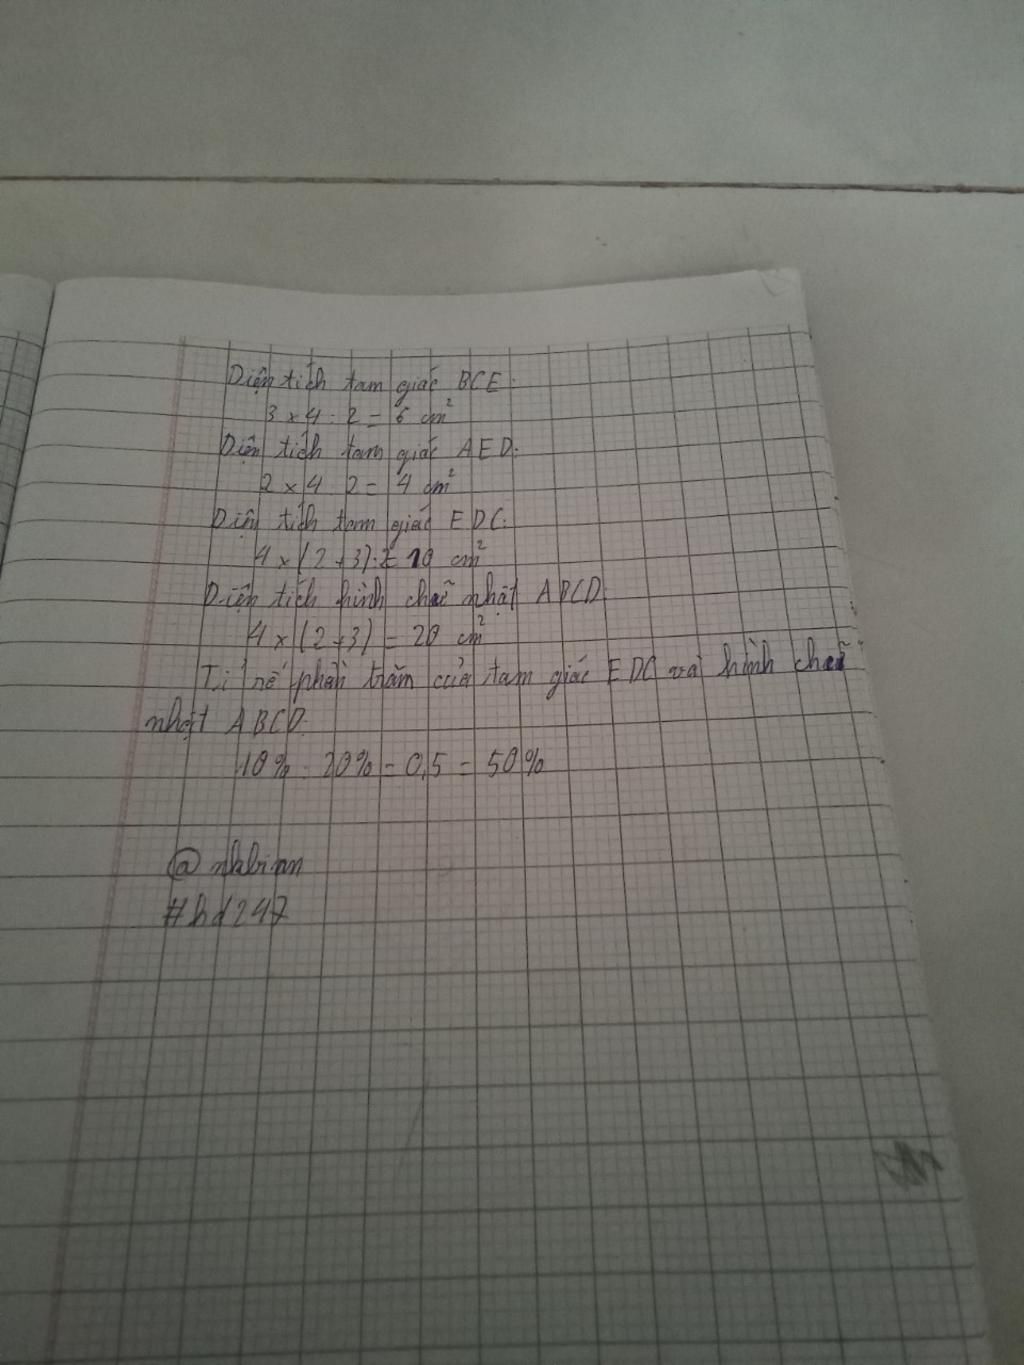 Diện tích tam giác BCE:
3 x 4 : 2 = 6 cm²
Diện tích tam giác AED:
2 x 4 : 2 = 4 cm²
Diện tích tam giác EDC:
4 x (2+3):2 10 cm²
Diện tích hình chữ nhật ABCD:
4 x (2+3) = 20 cm²
Tỉ số phần trăm của tam giác EDC và hình chữ
nhật ABCD:
10% : 20% = 0,5 = 50%
@nhbinn
#hd247